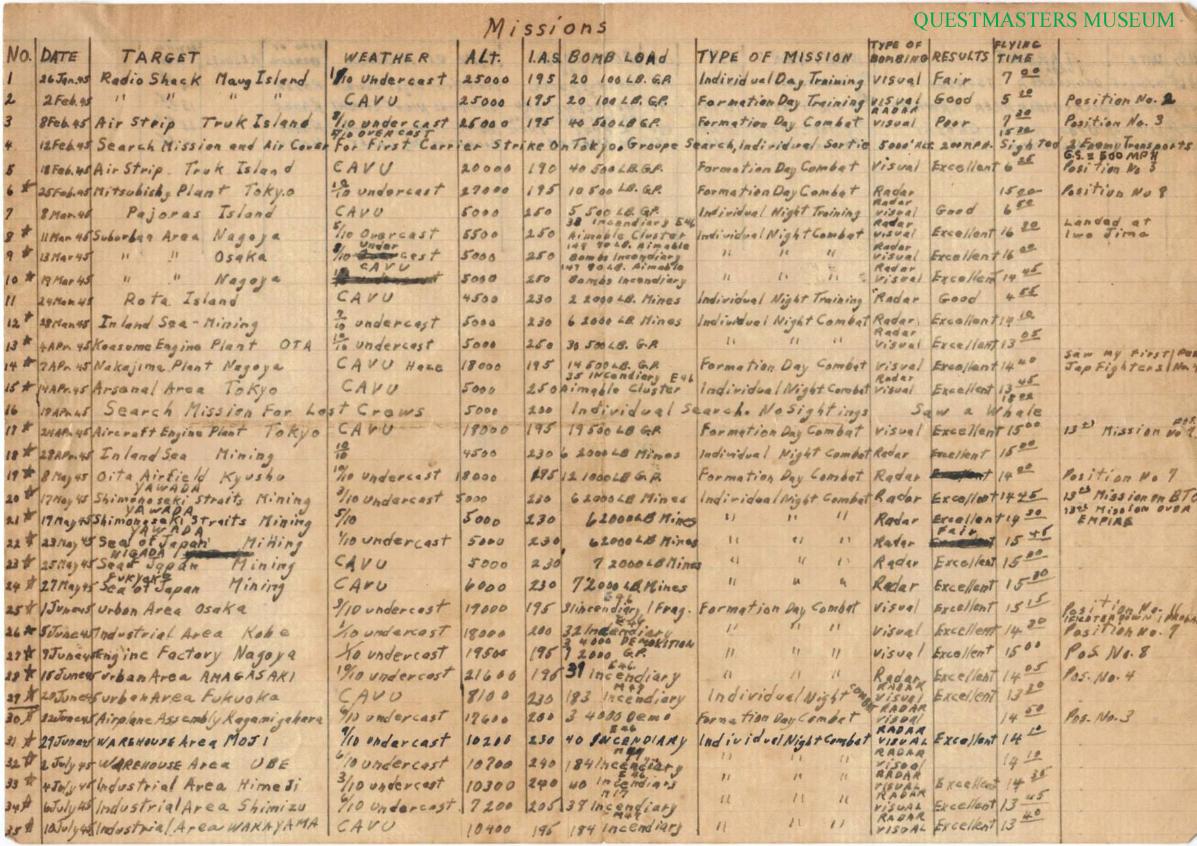 QUESTMASTERS MUSEUM
Missions
NO. DATE TARGET WEATHER ALT. I.A.S. BOMB LOAD TYPE OF MISSION TYPE OF BOMBING RESULTS FLYING TIME
1 26 Jan. 45 Radio Shack Maug Island /10 undercast 25000 195 20 100 LB. G.P. Individual Day Training Visual Fair 7 00
2 2 Feb. 45 " " " " CAVU 25000 195 20 100 LB. G.P. Formation Day Training Visual Good 5 Position No. 2
3 8 Feb. 45 Air Strip Truk Island /10 undercast 25000 195 40 500 LB. G.P. Formation Day Combat RADAR visual Poor 7 30 Position No. 3
4 12 Feb. 45 Search Mission and Air Cover For First Carrier Strike On Tokyo. Groupe Search, Individual Sortie 5000' Sighted 2 Enemy Transports
5/10 OVERCAST 15 30 G.S. = 500 MPH
5 18 Feb. 45 Air Strip. Truk Island CAVU 20000 190 40 500 LB. G.P. Formation Day Combat Visual Excellent 6 Position No 3
6 * 25 Feb. 45 Mitsubishy Plant Tokyo /10 undercast 27000 195 10 500 LB. G.P. Formation Day Combat Radar 15 00 Position No 8
7 8 Mar. 45 Pajoras Island CAVU 5000 250 5 500 LB. G.P. Individual Night Training Radar visual Good 6 50
8 * 11 Mar 45 Suburban Area Nagoya /10 Overcast 5500 250 38 incendiary E46 Aimable Cluster Individual Night Combat Radar visual Excellent 16 30 Landed at Iwo Jima
9 * 13 Mar 45 " " Osaka /10 Under cast 5000 250 Aimable Bombs Incendiary " " " Radar visual Excellent 16 00
10 * 19 Mar 45 " " Nagoya CAVU 5000 250 Aimable Bombs Incendiary " " " Radar Visual Excellent 14 45
11 24 Mar 45 Rota Island CAVU 4500 230 2 2000 LB. Mines Individual Night Training Radar Good 4 55
12 * 28 Mar 45 Inland Sea - Mining /10 undercast 5000 230 6 2000 LB. Mines Individual Night Combat Radar Excellent 14
13 * 4 Apr. 45 Koasume Engine Plant OTA /10 undercast 5000 250 30 500 LB. G.P. " " " Radar visual Excellent 13 05
14 * 7 Apr. 45 Nakajima Plant Nagoya CAVU Haze 18000 195 14 500 LB. G.P. Formation Day Combat Visual Excellent 14 40 Saw my first Jap Fighters
15 * 14 Apr. 45 Arsonal Area Tokyo CAVU 5000 250 35 Incendiary E46 Aimable Cluster Individual Night Combat Radar Visual Excellent 13 45
16 Search Mission For Lost Crews 5000 200 Individual Search. No Sightings Saw a Whale
17 * 24 Apr. 45 Aircraft Engine Plant Tokyo CAVU 18000 195 19 500 LB G.P. Formation Day Combat Visual Excellent 15 00 13th Mission
18 * 29 Apr. 45 Inland Sea Mining 10/10 4500 230 6 2000 LB. Mines Individual Night Combat Radar Excellent 15 00
19 * 8 May 45 Oita Airfield Kyushu 10/10 undercast 18000 195 12 1000 LB G.P. Formation Day Combat Radar 14 00 Position No. 7
20 * 17 May 45 YAWADA Shimonoseki Straits Mining /10 undercast 5000 230 6 2000 LB Mines Individual Night Combat Radar Excellent 14 45 13th Mission on BTO
21 * 19 May 45 YAWADA Shimonoseki Straits Mining 5/10 5000 230 6 2000 LB Mines " " " Radar Excellent 14 30 13th Mission OVER EMPIRE
22 * 23 May 45 YAWADA Sea of Japan Mining /10 undercast 5000 230 6 2000 LB Mines " " " Radar Fair 15 45
23 * 25 May 45 NIGADA Sea of Japan Mining CAVU 5000 230 7 2000 LB Mines " " " Radar Excellent 15 00
24 * 27 May 45 FUKYOKO Sea of Japan Mining CAVU 6000 230 7 2000 LB. Mines " " " Radar Excellent 15 00
25 * 1 June 45 Urban Area Osaka /10 undercast 19000 195 E46 Incendiary 1 Frag. Formation Day Combat Visual Excellent 15 15 Position No. 11
26 * 5 June 45 Industrial Area Kobe /10 undercast 18000 200 32 Incendiary " " " Visual Excellent 14 30 Position No. 7
27 * 9 June 45 Engine Factory Nagoya /10 undercast 19500 195 3 4000 DEMOLITION 2000 G.P. " " " Visual Excellent 15 00 Pos. No. 8
28 * 15 June 45 Urban Area AMAGASAKI 10/10 undercast 21600 195 39 E46 Incendiary " " " Radar Excellent 14 05 Pos. No. 4
29 * 20 June 45 Urban Area Fukuoka CAVU 8100 230 183 M47 incendiary Individual Night COMBAT RADAR Visual Excellent 13 20
30 * 22 June 45 Airplane Assembly Kagamigahara /10 undercast 17600 200 3 4000 Demo Formation Day Combat RADAR visual 14 50 Pos. No. 3
31 * 29 June 45 WAREHOUSE Area MOJI /10 undercast 10200 230 40 E46 INCENDIARY Individual Night Combat RADAR VISUAL Excellent 14
32 * 2 July 45 WAREHOUSE Area UBE /10 undercast 10700 240 184 Incendiary " " " RADAR Visual 14
33 * 4 July 45 Industrial Area Himeji 3/10 undercast 10300 240 40 E46 Incendiary " " " RADAR VISUAL Excellent 14 35
34 * 6 July 45 Industrial Area Shimizu /10 undercast 7200 205 39 Incendiary " " " RADAR VISUAL Excellent 13 45
35 * 10 July 45 Industrial Area WAKAYAMA CAVU 10400 195 184 M47 Incendiary " " " RADAR VISUAL Excellent 13 40